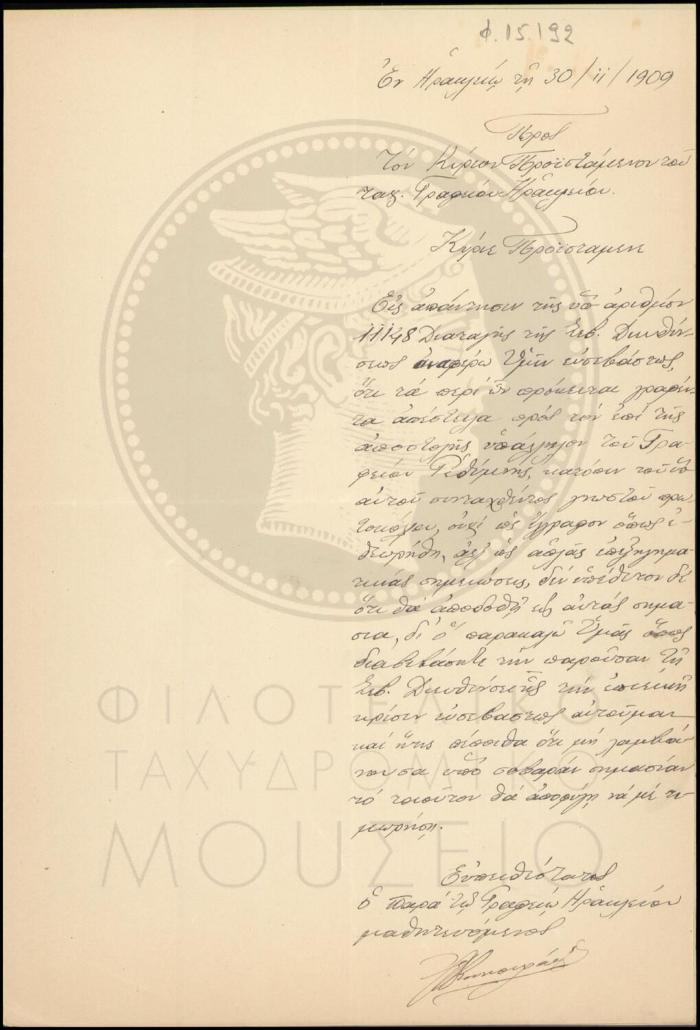 φ. 15.192
Ἐν Ἡρακλείῳ τῇ 30/11/1909
Πρὸς
Τὸν Κύριον Προϊστάμενον τοῦ
ταχ. Γραφείου Ἡρακλείου.
Κύριε Προϊστάμενε
Εἰς ἀπάντησιν τῆς ὑπ' ἀριθμὸν
11148 Διαταγῆς τῆς Σεβ. Διευθύν-
σεως ἀναφέρω Ὑμῖν εὐσεβάστως,
ὅτι τὰ περὶ ὧν πρόκειται γραφέν-
τα ἀπέστειλα πρὸς τὸν ἐπὶ τῆς
ἀποστολῆς ὑπάλληλον τοῦ Γρα-
φείου Ρεθύμνης, κατόπιν τοῦ ὑπ'
αὐτοῦ συνταχθέντος γνωστοῦ πρω
τοκόλλου, οὐχὶ ὡς ἔγγραφον ὅπως ἐ-
θεωρήθη, ἀλλ' ὡς ἁπλᾶς ἐπεξηγημα
τικὰς σημειώσεις, δὲν ὑπέθετον δὲ
ὅτι θὰ ἀποδοθῇ εἰς αὐτὰς σημα-
σία, δι' ὃ παρακαλῶ Ὑμᾶς ὅπως
διαβιβάσητε τὴν παροῦσαν τῇ
Σεβ. Διευθύνσει ἧς τὴν ἐπιεικῆ
κρίσιν εὐσεβάστως αἰτοῦμαι
καὶ ἥτις πέποιθα ὅτι μὴ λαμβά-
νουσα ὑπὸ σοβαρὰν σημασίαν
τὸ τοιοῦτον θὰ ἀποφύγῃ νά μὲ τι
μωρήσῃ.
Εὐπειθέστατος
ὁ παρὰ τῷ Γραφείῳ Ἡρακλείου
μαθητευόμενος
ΦΙΛΟΤΕΛΙΚΟ
ΤΑΧΥΔΡΟΜΙΚΟ
ΜΟΥΣΕΙΟ